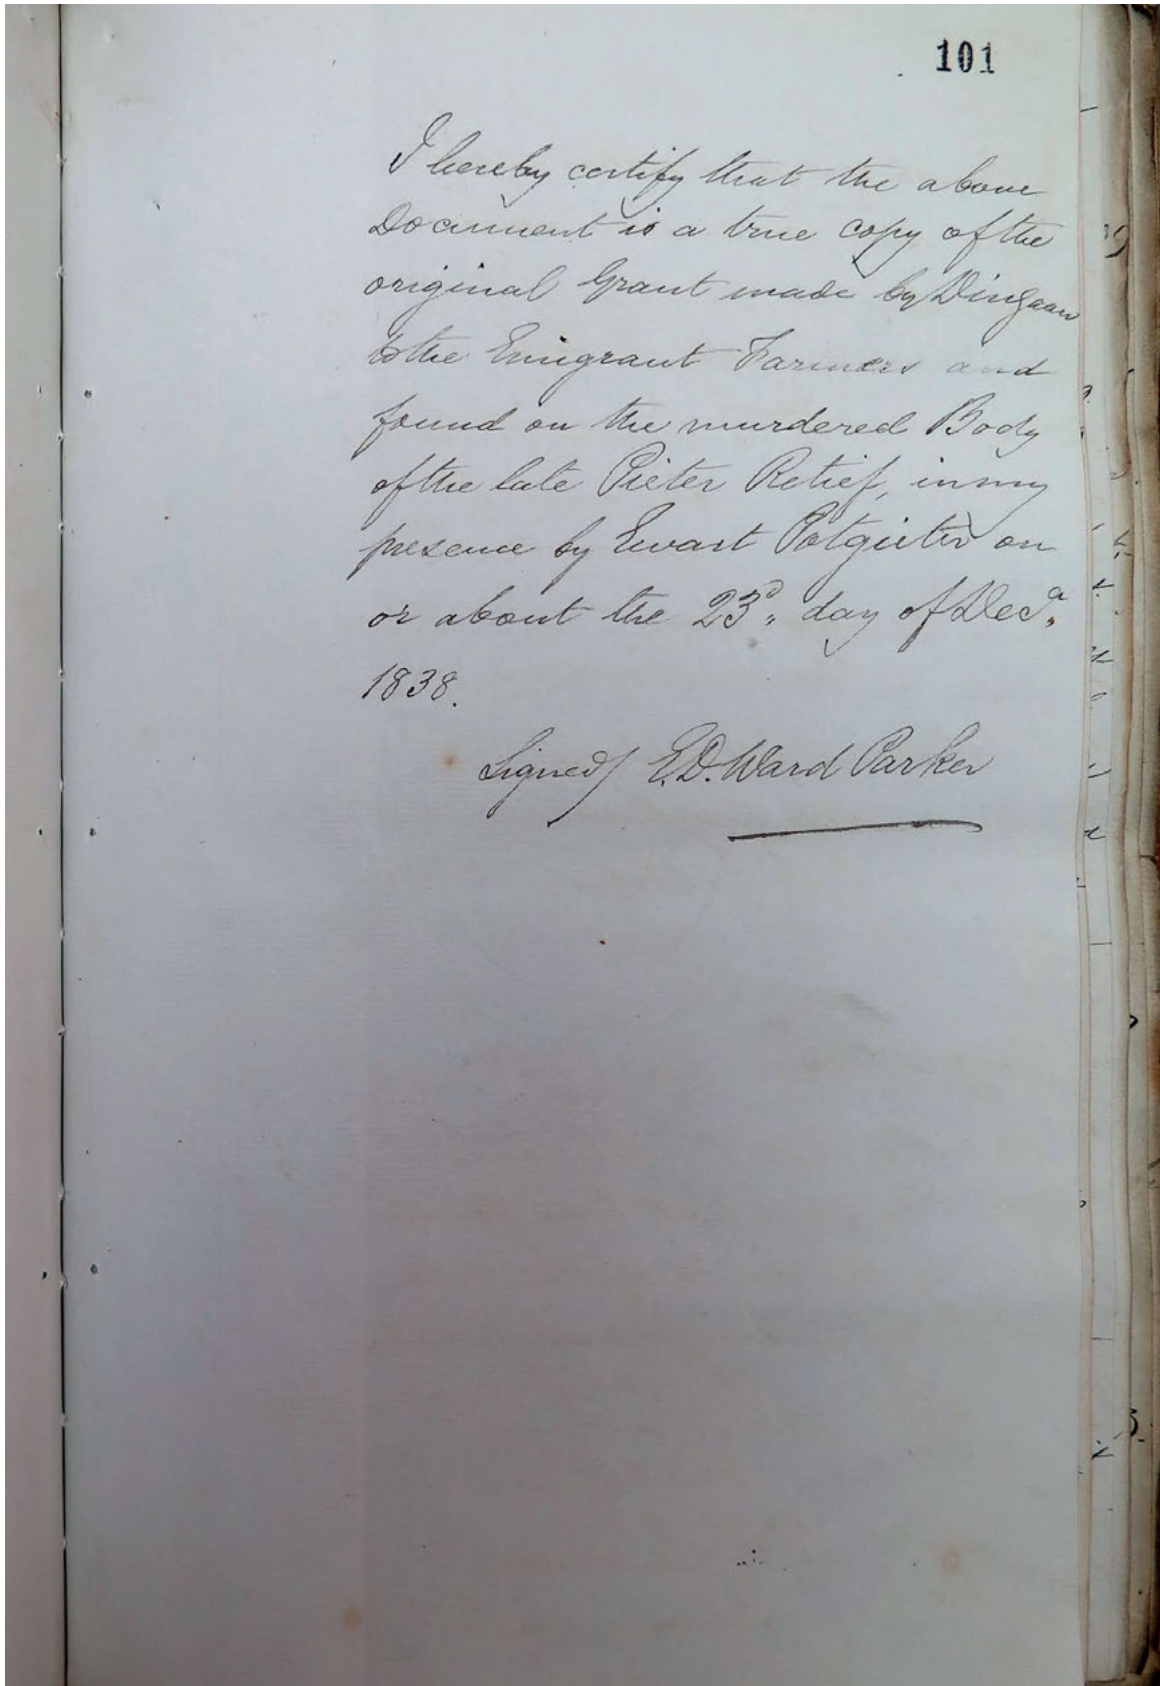 101
I hereby certify that the above
Document is a true copy of the
original Grant made by Dingaan
to the Emigrant Farmers and
found on the murdered Body
of the late Pieter Retief, in my
presence by Evart Potgieter on
or about the 23d. day of Decr.
1838.
Signed/ E.D. Ward Parker